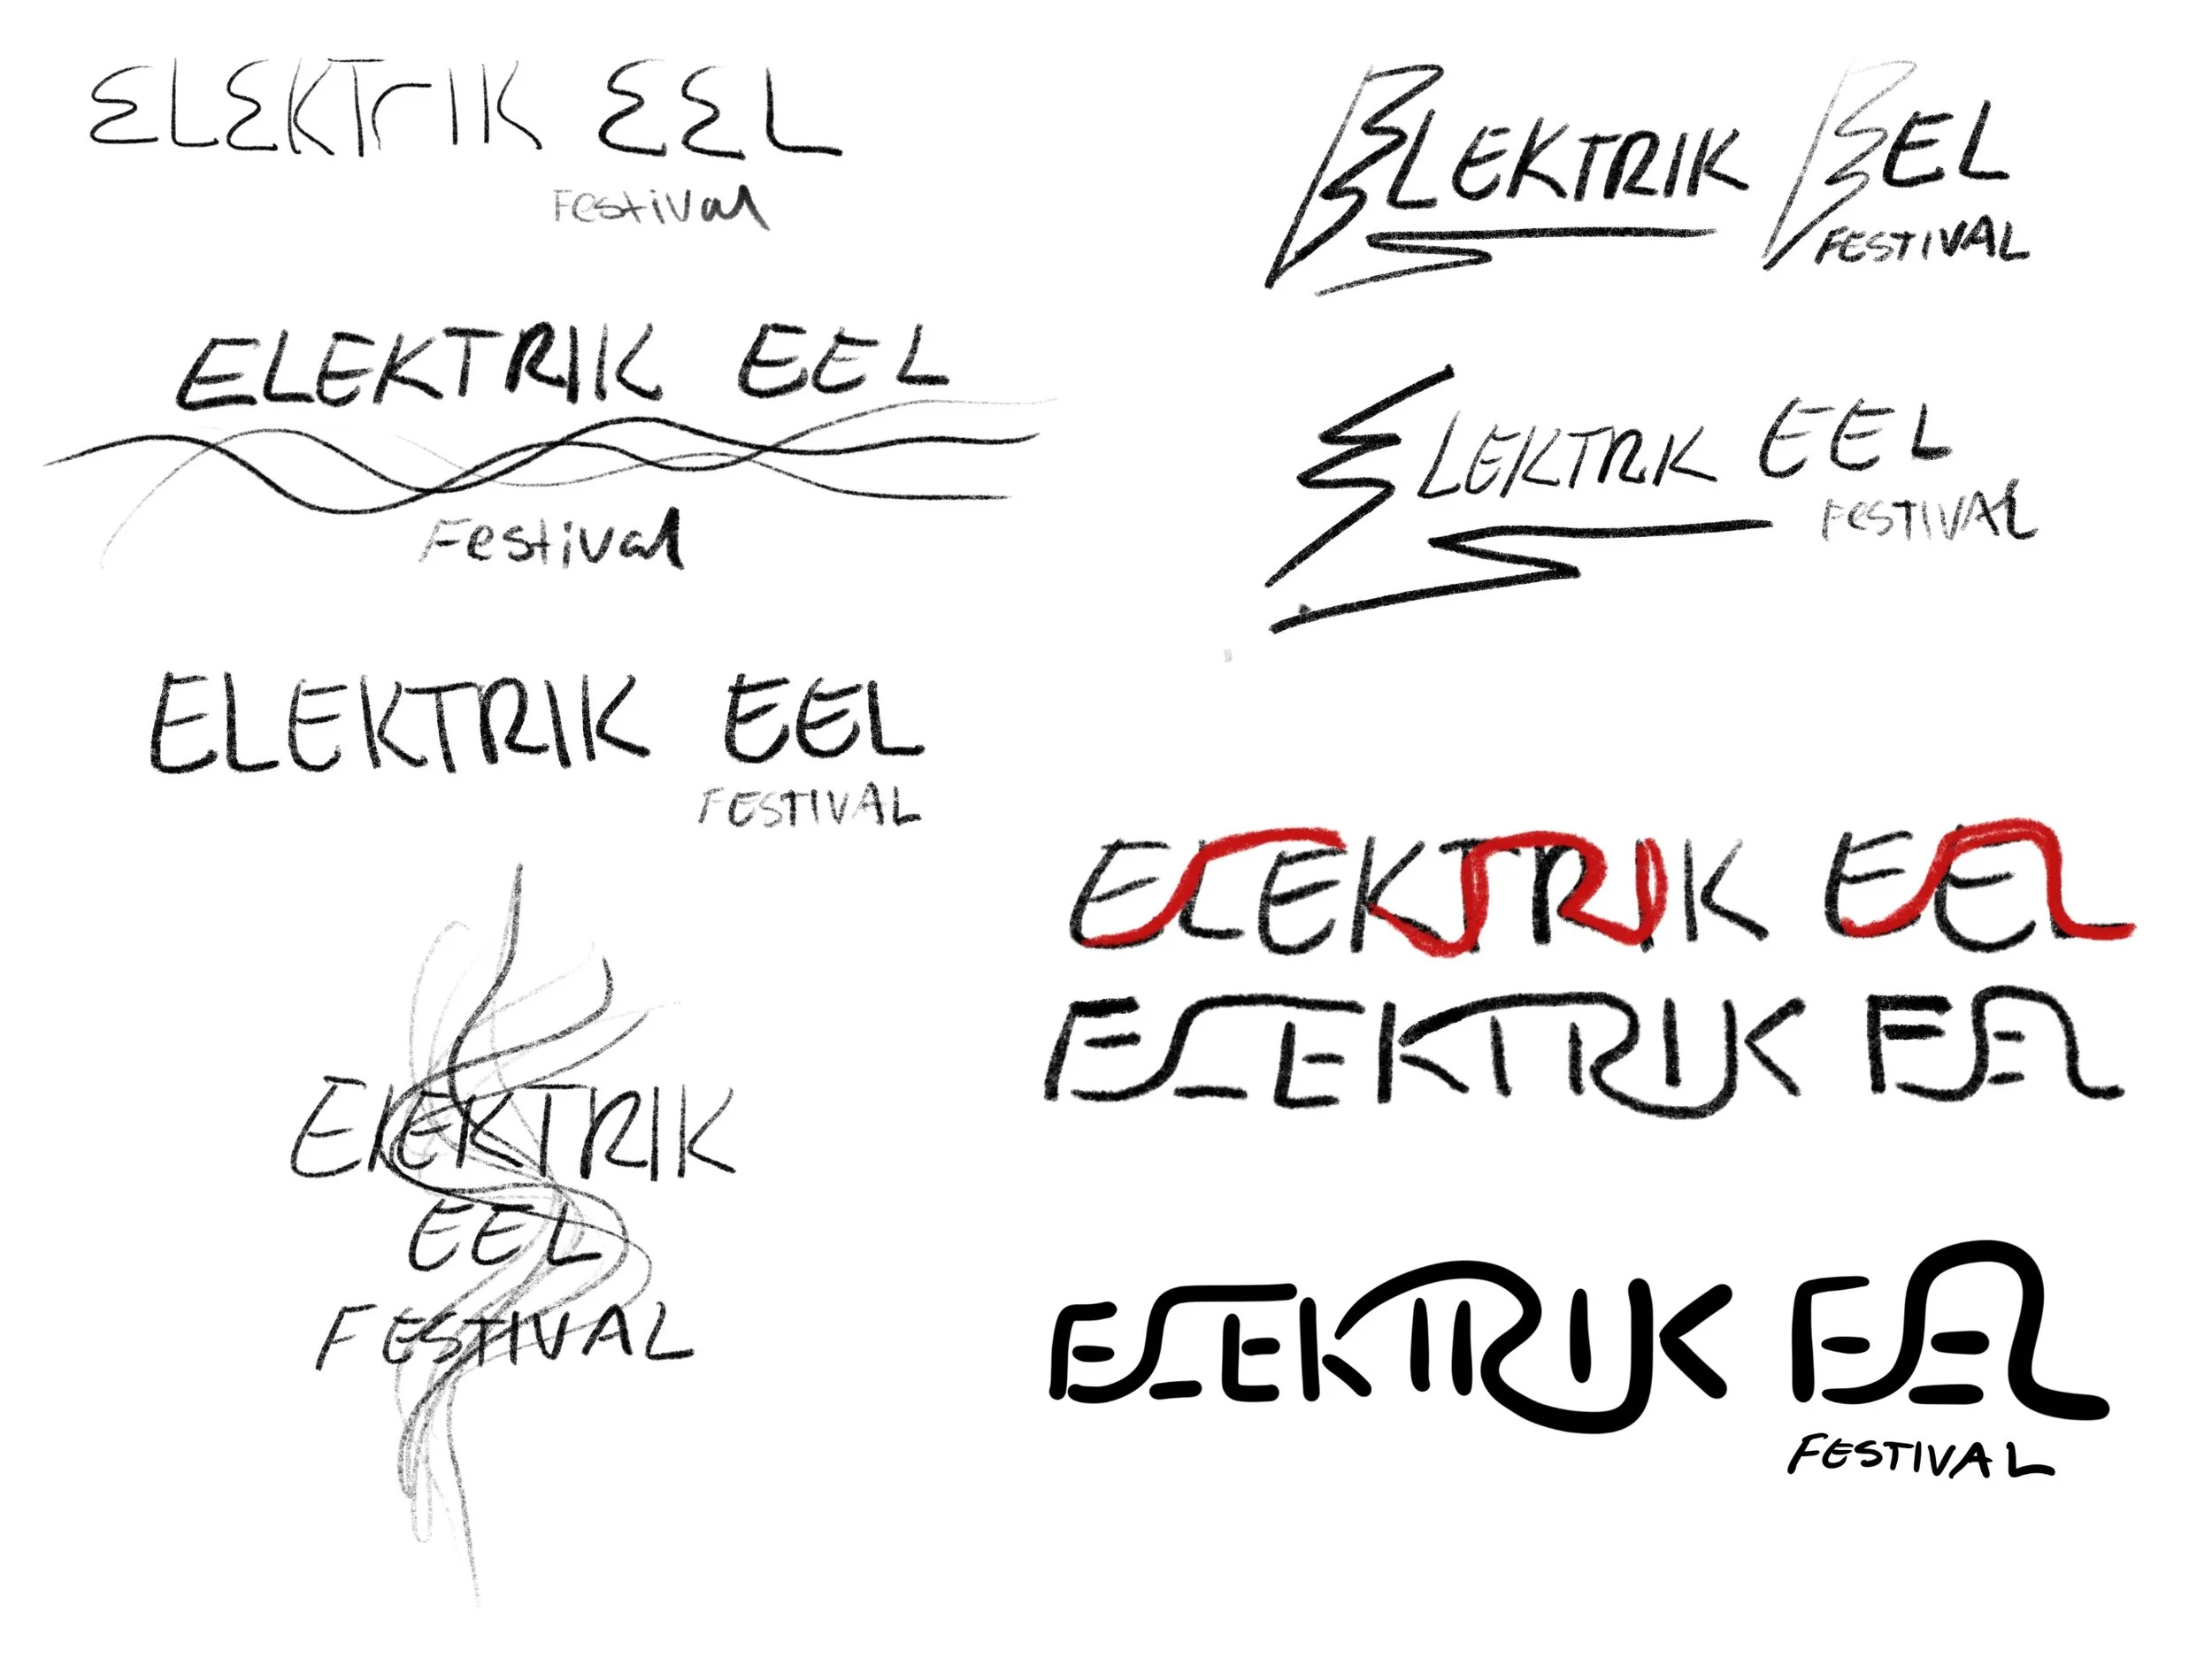 ELEKTrIK EEL
Festival
ELEKTRIK EEL
Festival
ELEKTRIK EEL
FESTIVAL
ElEKTRIK
EEL
FESTIVAL
ELEKTRIK EEL
FESTIVAL
ELEKTRK EEL
FeSTIVAL
ELEKTRIK EEL
ELEKTRIK EEL
ELEKTRIK EEL
FESTIVAL